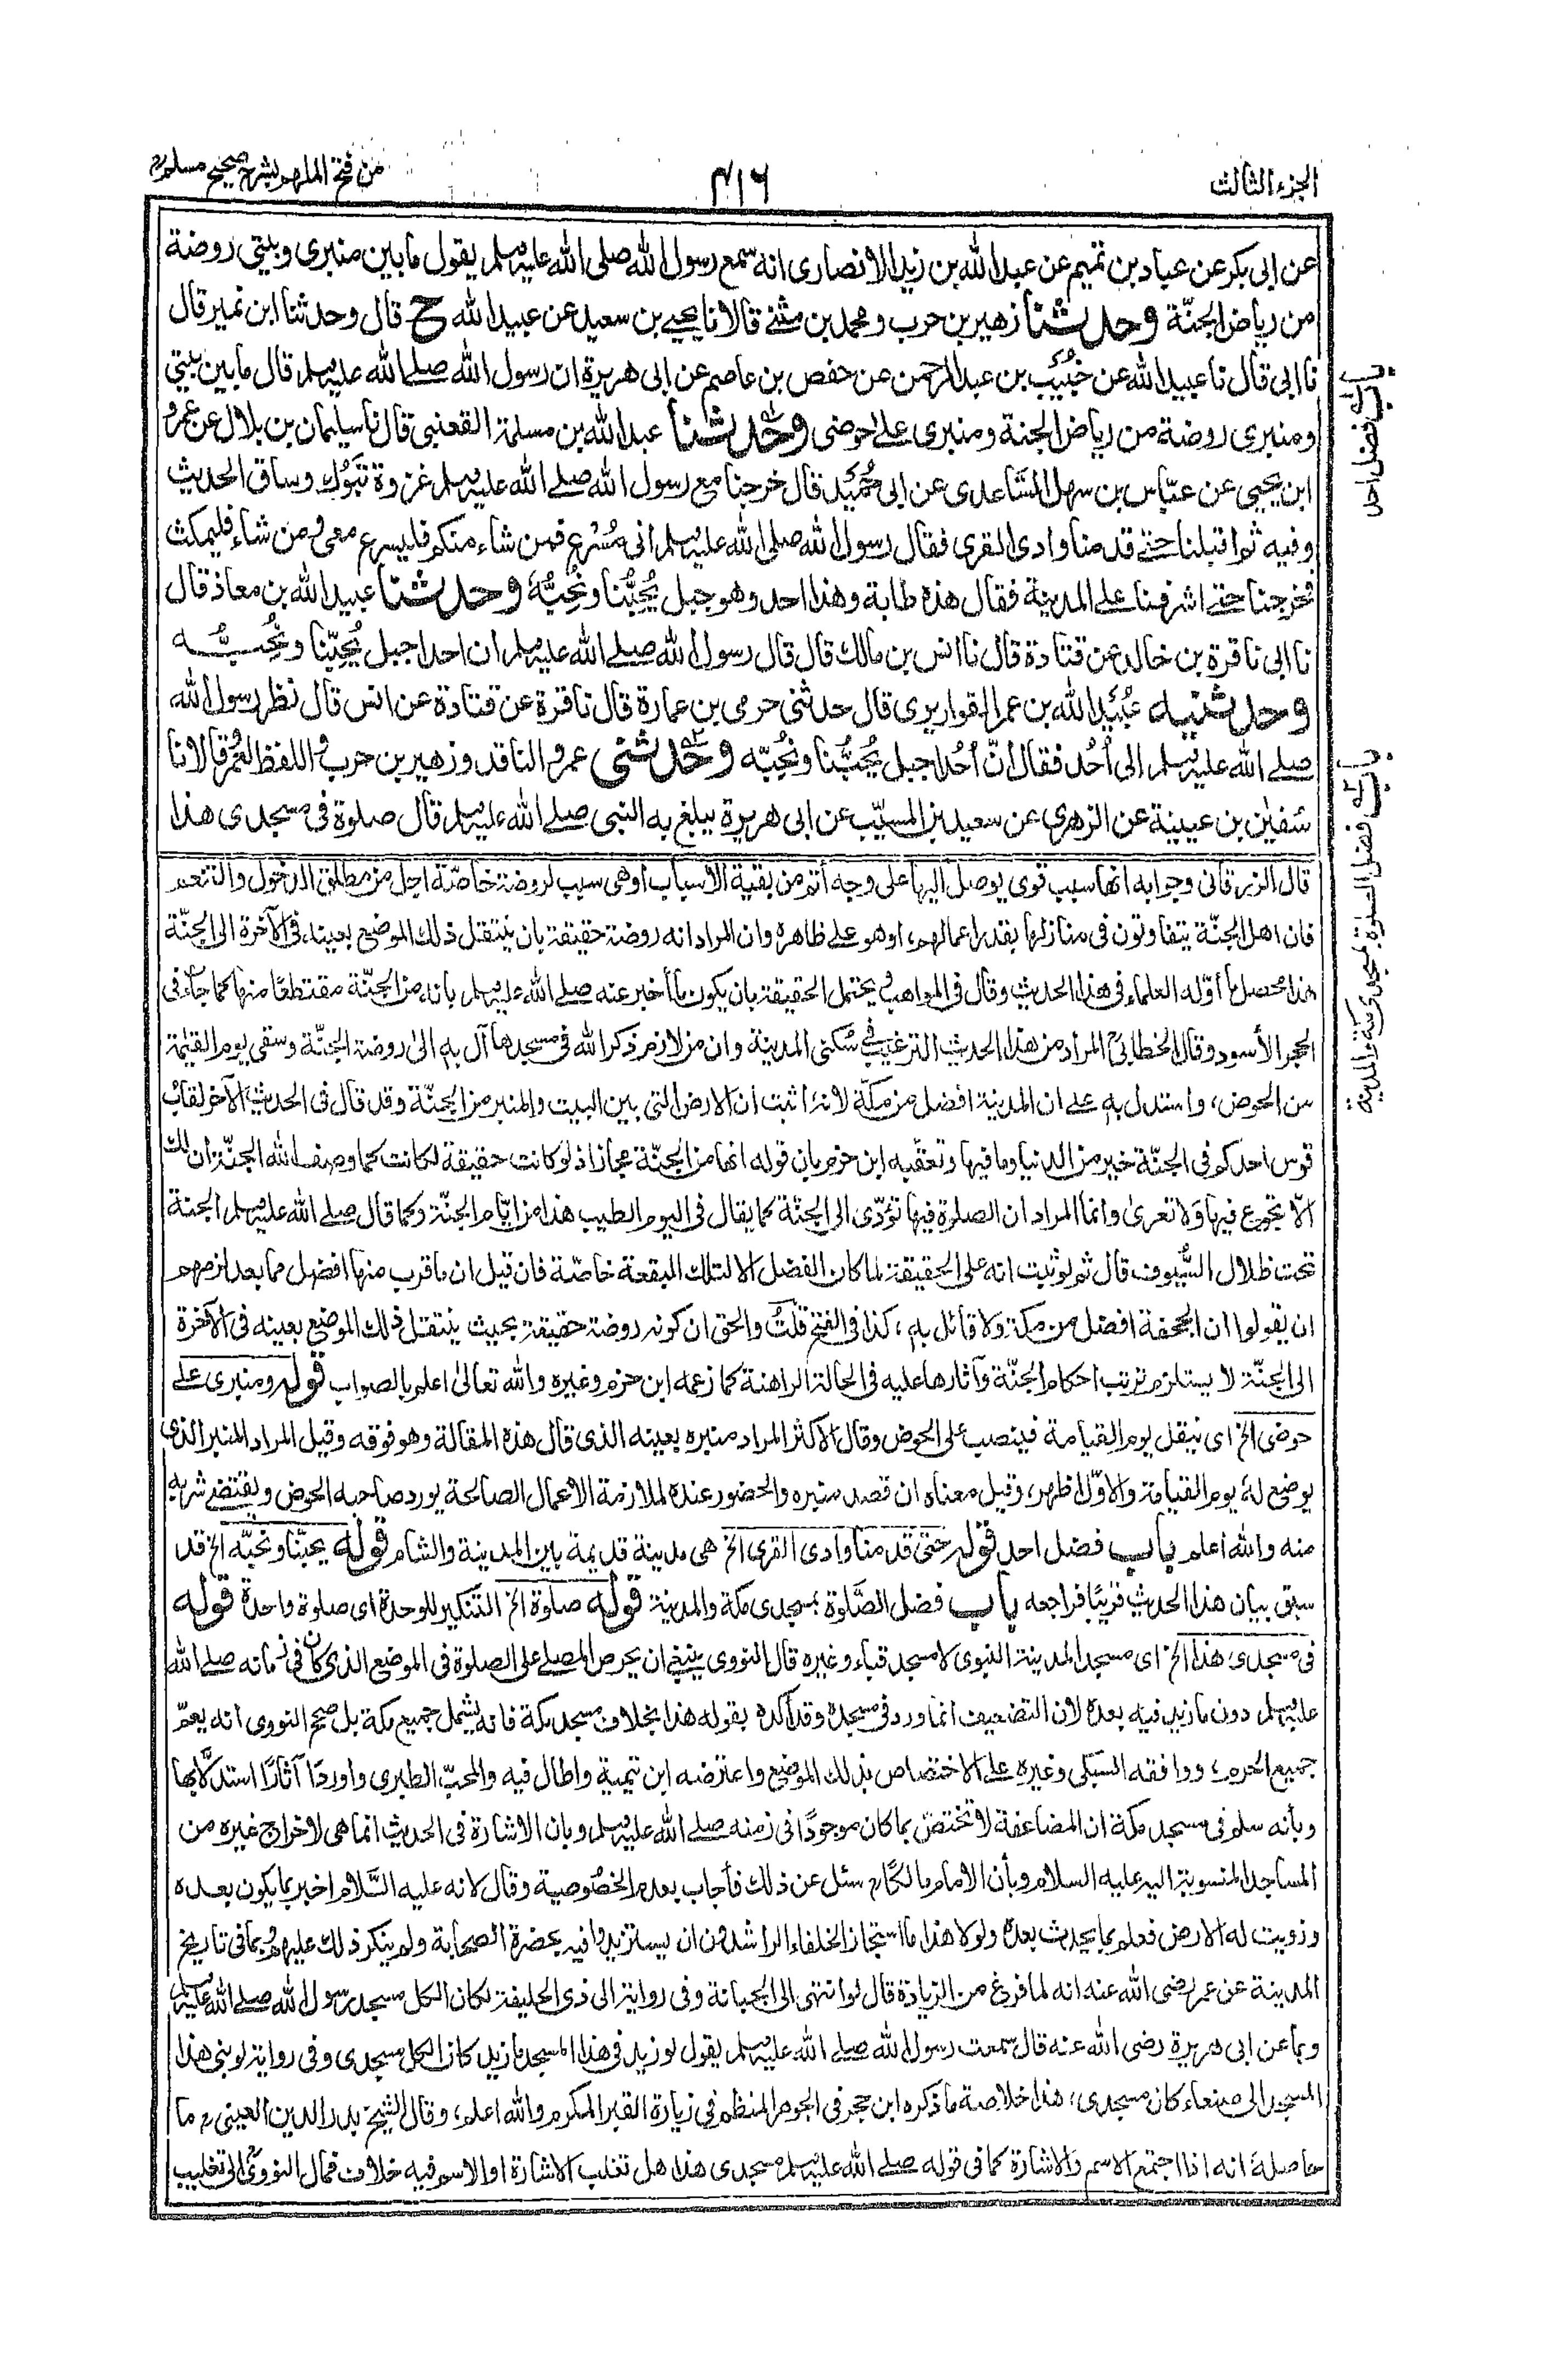 الجزء الثالث
۴۱۶
من فتح الملهم بشرح صحيح مسلم
عن ابى بكر عن عباد بن تميم عن عبد الله بن زيد الانصارى انه سمع رسول الله صلى الله عليه وسلم يقول ما بين منبرى وبيتى روضة
من رياض الجنّة وحدثنا زهير بن حرب ومحمد بن مثنى قالا نا يحيى بن سعيد عن عبيد الله ح قال وحدثنا ابن نمير قال
نا ابى قال نا عبيد الله عن خُبَيْب بن عبد الرحمن عن حفص بن عاصم عن ابى هريرة ان رسول الله صلى الله عليه وسلم قال ما بين بيتى
ومنبرى روضة من رياض الجنة ومنبرى على حوضى وحدثنا عبد الله بن مسلمة القعنبى قال نا سليمان بن بلال عن عمرو
ابن يحيى عن عبّاس بن سهل السّاعدى عن ابى حُمَيْد قال خرجنا مع رسول الله صلى الله عليه وسلم غزوة تَبُوْك وساق الحديث
وفيه ثم اقبلنا حتى قدمنا وادى القرى فقال رسول الله صلى الله عليه وسلم انى مُسْرع فمن شاء منكم فليسرع معى ومن شاء فليمكث
فخرجنا حتى اشرفنا على المدينة فقال هذه طابة وهذا احد وهو جبل يُحِبُّنا ونُحِبُّهٗ وحدثنا عبيد الله بن معاذ قال
نا ابى نا قرة بن خالد عن قتادة قال نا انس بن مالك قال قال رسول الله صلى الله عليه وسلم ان احدا جبل يُحِبّنا ونُحِبُّه
وحدثنيه عُبَيْد الله بن عمر القواريرى قال حدثنى حرمى بن عمارة قال نا قرة عن قتادة عن انس قال نظر رسول الله
صلى الله عليه وسلم الى اُحُد فقال انّ اُحُدا جبل يُحِبُّنا ونُحِبّه وحدثنى عمرو الناقد وزهير بن حرب واللفظ لعمرو قالا نا
سُفيٰن بن عيينة عن الزهرى عن سعيد بن المسيّب عن ابى هريرة يبلغ به النبى صلى الله عليه وسلم قال صلوة فى مسجدى هذا
باب فضل احد
باب فضل الصلوة بمسجدى مكة والمدينة
قال الزرقانى وجوابه انها سبب قوى يوصل اليها على وجه أتم من بقية الأسباب او هى سبب لروضة خاصّة اجل من مطلق الدخول والتنعم
فان اهل الجنّة يتفاوتون فى منازلها بقدر اعمالهم، او هو على ظاهره وان المراد انه روضة حقيقة بان ينتقل ذلك الموضع بعينه فى الآخرة الى الجنّة
هذا محصل ما أوّله العلماء فى هذا الحديث وقال فى المواهب يحتمل الحقيقة بان يكون ما أخبر عنه صلى الله عليه وسلم بانه من الجنّة مقتطعًا منها كما جاء فى
الحجر الأسود وقال الخطابى المراد من هذا الحديث الترغيب فى سُكنى المدينة وان من لازم ذكر الله فى مسجدها آل به الىٰ روضة الجنّة وسقى يوم القيٰمة
من الحوض، واستدل به على ان المدينة افضل من مكّة لانه اثبت ان الارض التى بين البيت والمنبر من الجنّة وقد قال فى الحديث الآخر لقاب
قوس احدكم فى الجنّة خير من الدنيا وما فيها وتعقّبه ابن حزم بان قوله انها من الجنّة مجازا اذ لو كانت حقيقة لكانت كما وصف الله الجنّة ان لك
الا تجوع فيها ولا تعرىٰ وانما المراد ان الصلوة فيها تؤدّى الى الجنّة كما يقال فى اليوم الطيب هذا من ايّام الجنّة وكما قال صلى الله عليه وسلم الجنة
تحت ظلال السُّيوف قال ثم لو ثبت انه على الحقيقة لما كان الفضل الا لتلك البقعة خاصّة فان قيل ان ما قرب منها افضل مما بعد لزمهم
ان يقولوا ان الجحفة افضل من مكة ولا قائل به، كذا فى الفتح قلت والحق ان كونه روضة حقيقة بحيث ينتقل ذلك الموضع بعينه فى الآخرة
الى الجنّة لا يستلزم ترتب احكام الجنّة وآثارها عليه فى الحالة الراهنة كما زعمه ابن حزم وغيره والله تعالىٰ اعلم بالصواب قوله ومنبرى على
حوضى الخ اى ينقل يوم القيامة فينصب على الحوض وقال الاكثر المراد منبره بعينه الذى قال هذه المقالة وهو فوقه وقيل المراد المنبر الذى
يوضع له يوم القيامة والاوّل اظهر، وقيل معناه ان قصد منبره والحضور عنده لملازمة الاعمال الصالحة يورد صاحبه الحوض ويقتضى شربه
منه والله أعلم باب فضل احد قوله حتى قدمنا وادى القرى الخ هى مدينة قديمة بين المدينة والشام قوله يحبّنا ونحبّه الخ قد
سبق بيان هذا الحديث قريبًا فراجعه باب فضل الصّلوة بمسجدى مكة والمدينة قوله صلوة الخ التنكير للوحدة اى صلوة واحدة قوله
فى مسجدى هذا الخ اى مسجد المدينة النبوى لا مسجد قباء وغيره قال النووى ينبغى ان يحرص المصلى على الصلوة فى الموضع الذى كان فى زمانه صلى الله
عليه وسلم دون ما زيد فيه بعده لان التضعيف انما ورد فى مسجده وقد أكده بقوله هذا بخلاف مسجد مكة فانه يشمل جميع مكة بل صحح النووى انه يعمّ
جميع الحرم، ووافقه السّبكى وغيره على الاختصاص بذلك الموضع واعترضه ابن تيمية واطال فيه والمحبّ الطبرى واوردا آثارًا استدلّا بها
وبأنه سلم فى مسجد مكة ان المضاعفة لا تختصّ بما كان موجودًا فى زمنه صلى الله عليه وسلم وبان الاشارة فى الحديث انما هى لاخراج غيره من
المساجد المنسوبة اليه عليه السلام وبأن الامام مالكًا سئل عن ذلك فأجاب بعدم الخصُوصية وقال لانه عليه السَّلام اخبر بما يكون بعده
وزويت له الارض فعلم بما يحدث بعده ولولا هذا ما استجاز الخلفاء الراشدون ان يستزيدوا فيه بحضرة الصحابة ولم ينكر ذلك عليهم وبما فى تاريخ
المدينة عن عمر رضى الله عنه انه لما فرغ من الزيادة قال لو انتهى الى الجبانة وفى رواية الى ذى الحليفة لكان الكل مسجد رسول الله صلى الله عليه وسلم
وبما عن ابى هريرة رضى الله عنه قال سمعت رسول الله صلى الله عليه وسلم يقول لو زيد فى هذا المسجد ما زيد كان الكل مسجدى وفى رواية لو بنى هذا
المسجد الى صنعاء كان مسجدى، هذا خلاصة ما ذكره ابن حجر فى الجوهر المنظم فى زيارة القبر المكرم والله اعلم، وقال الشيخ بدر الدين العينى ما
حاصلة انه اذا اجتمع الاسم والاشارة كما فى قوله صلى الله عليه وسلم مسجدى هذا هل تغلب الاشارة او الاسم فيه خلاف فمال النووى الى تغليب